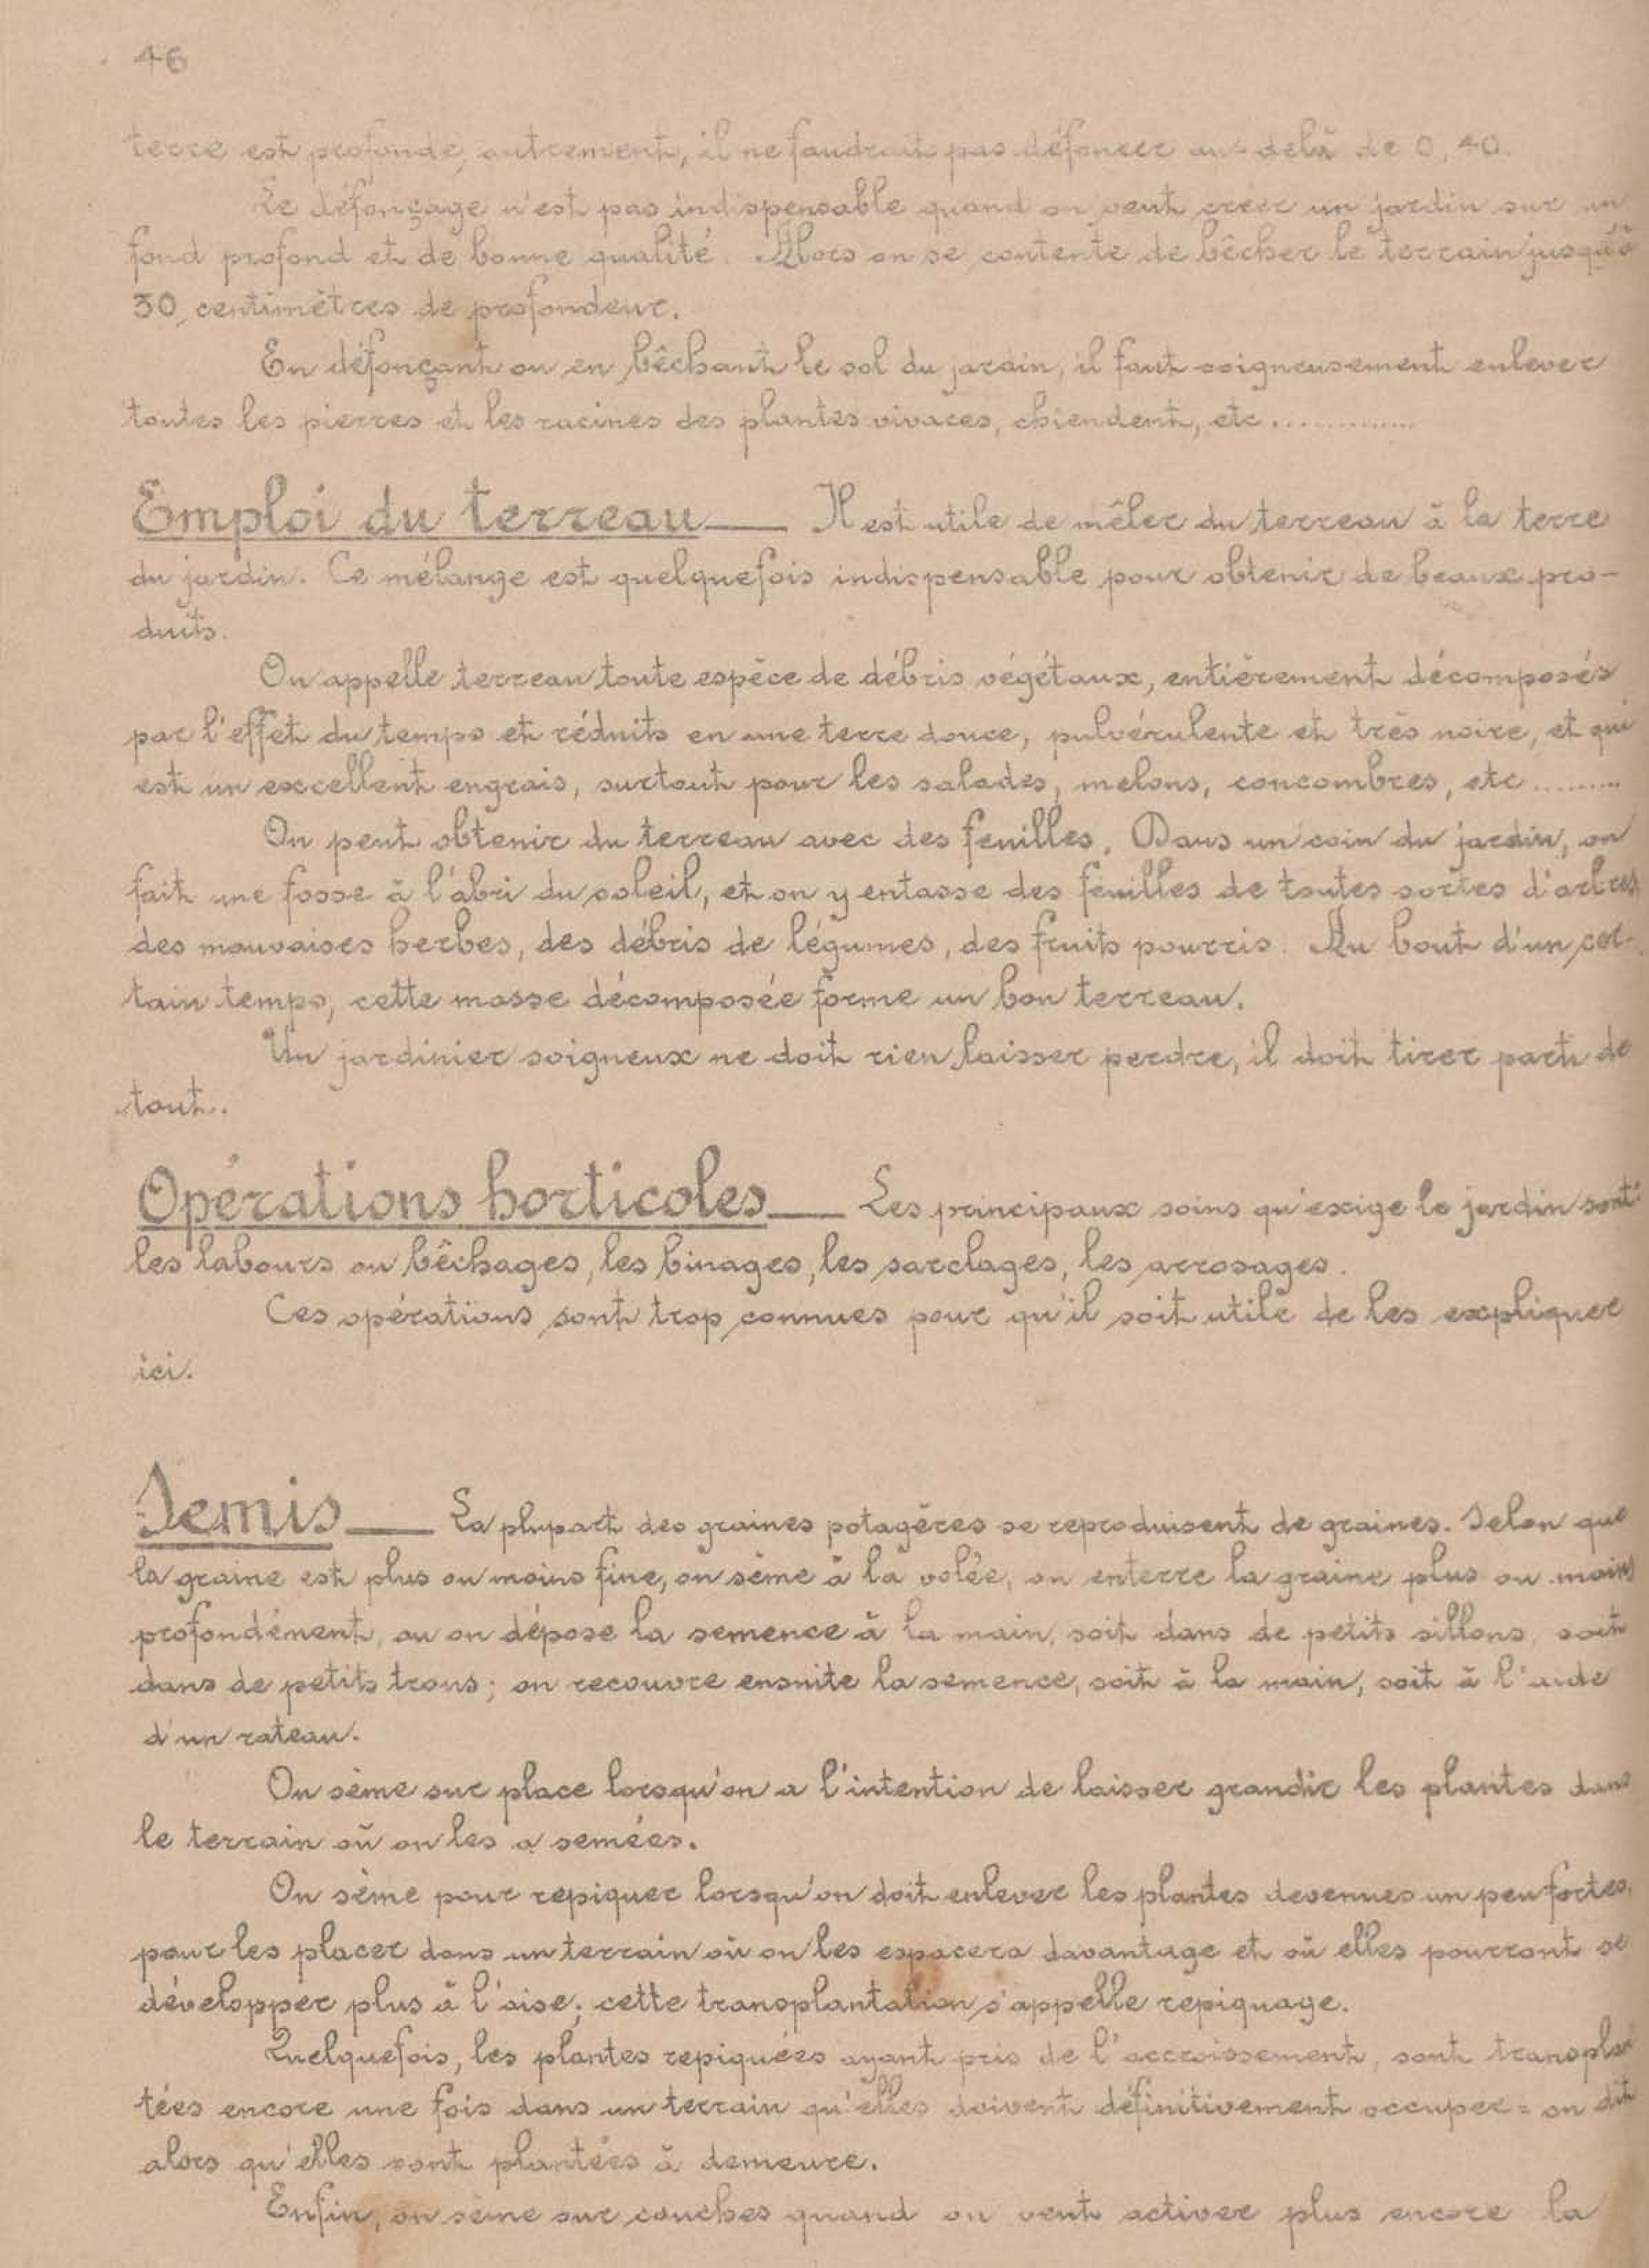 46
terre est profonde, autrement, il ne faudrait pas défoncer au-delà de 0,40.
Le défonçage n'est pas indispensable quand on veut créer un jardin sur un
fond profond et de bonne qualité. Alors on se contente de bêcher le terrain jusqu'à
30 centimètres de profondeur.
En défonçant ou en bêchant le sol du jardin, il faut soigneusement enlever
toutes les pierres et les racines des plantes vivaces, chiendent, etc.............
Emploi du terreau — Il est utile de mêler du terreau à la terre
du jardin. Ce mélange est quelquefois indispensable pour obtenir de beaux pro-
duits.
On appelle terreau toute espèce de débris végétaux, entièrement décomposés
par l'effet du temps et réduits en une terre douce, pulvérulente et très noire, et qui
est un excellent engrais, surtout pour les salades, melons, concombres, etc.........
On peut obtenir du terreau avec des feuilles. Dans un coin du jardin, on
fait une fosse à l'abri du soleil, et on y entasse des feuilles de toutes sortes d'arbres
des mauvaises herbes, des débris de légumes, des fruits pourris. Au bout d'un cer-
tain temps, cette masse décomposée forme un bon terreau.
Un jardinier soigneux ne doit rien laisser perdre, il doit tirer parti de
tout.
Opérations horticoles — Les principaux soins qu'exige le jardin sont:
les labours ou bêchages, les binages, les sarclages, les arrosages.
Ces opérations sont trop connues pour qu'il soit utile de les expliquer
ici.
Semis — La plupart des graines potagères se reproduisent de graines. Selon que
la graine est plus ou moins fine, on sème à la volée, on enterre la graine plus ou moins
profondément, ou on dépose la semence à la main, soit dans de petits sillons, soit
dans de petits trous; on recouvre ensuite la semence, soit à la main, soit à l'aide
d'un rateau.
On sème sur place lorsqu'on a l'intention de laisser grandir les plantes dans
le terrain où on les a semées.
On sème pour repiquer lorsqu'on doit enlever les plantes devenues un peu fortes,
pour les placer dans un terrain où on les espacera davantage et où elles pourront se
développer plus à l'aise; cette transplantation s'appelle repiquage.
Quelquefois, les plantes repiquées ayant pris de l'accroissement, sont transplan
tées encore une fois dans un terrain qu'elles doivent définitivement occuper = on dit
alors qu'elles sont plantées à demeure.
Enfin, on sème sur couches quand on veut activer plus encore la